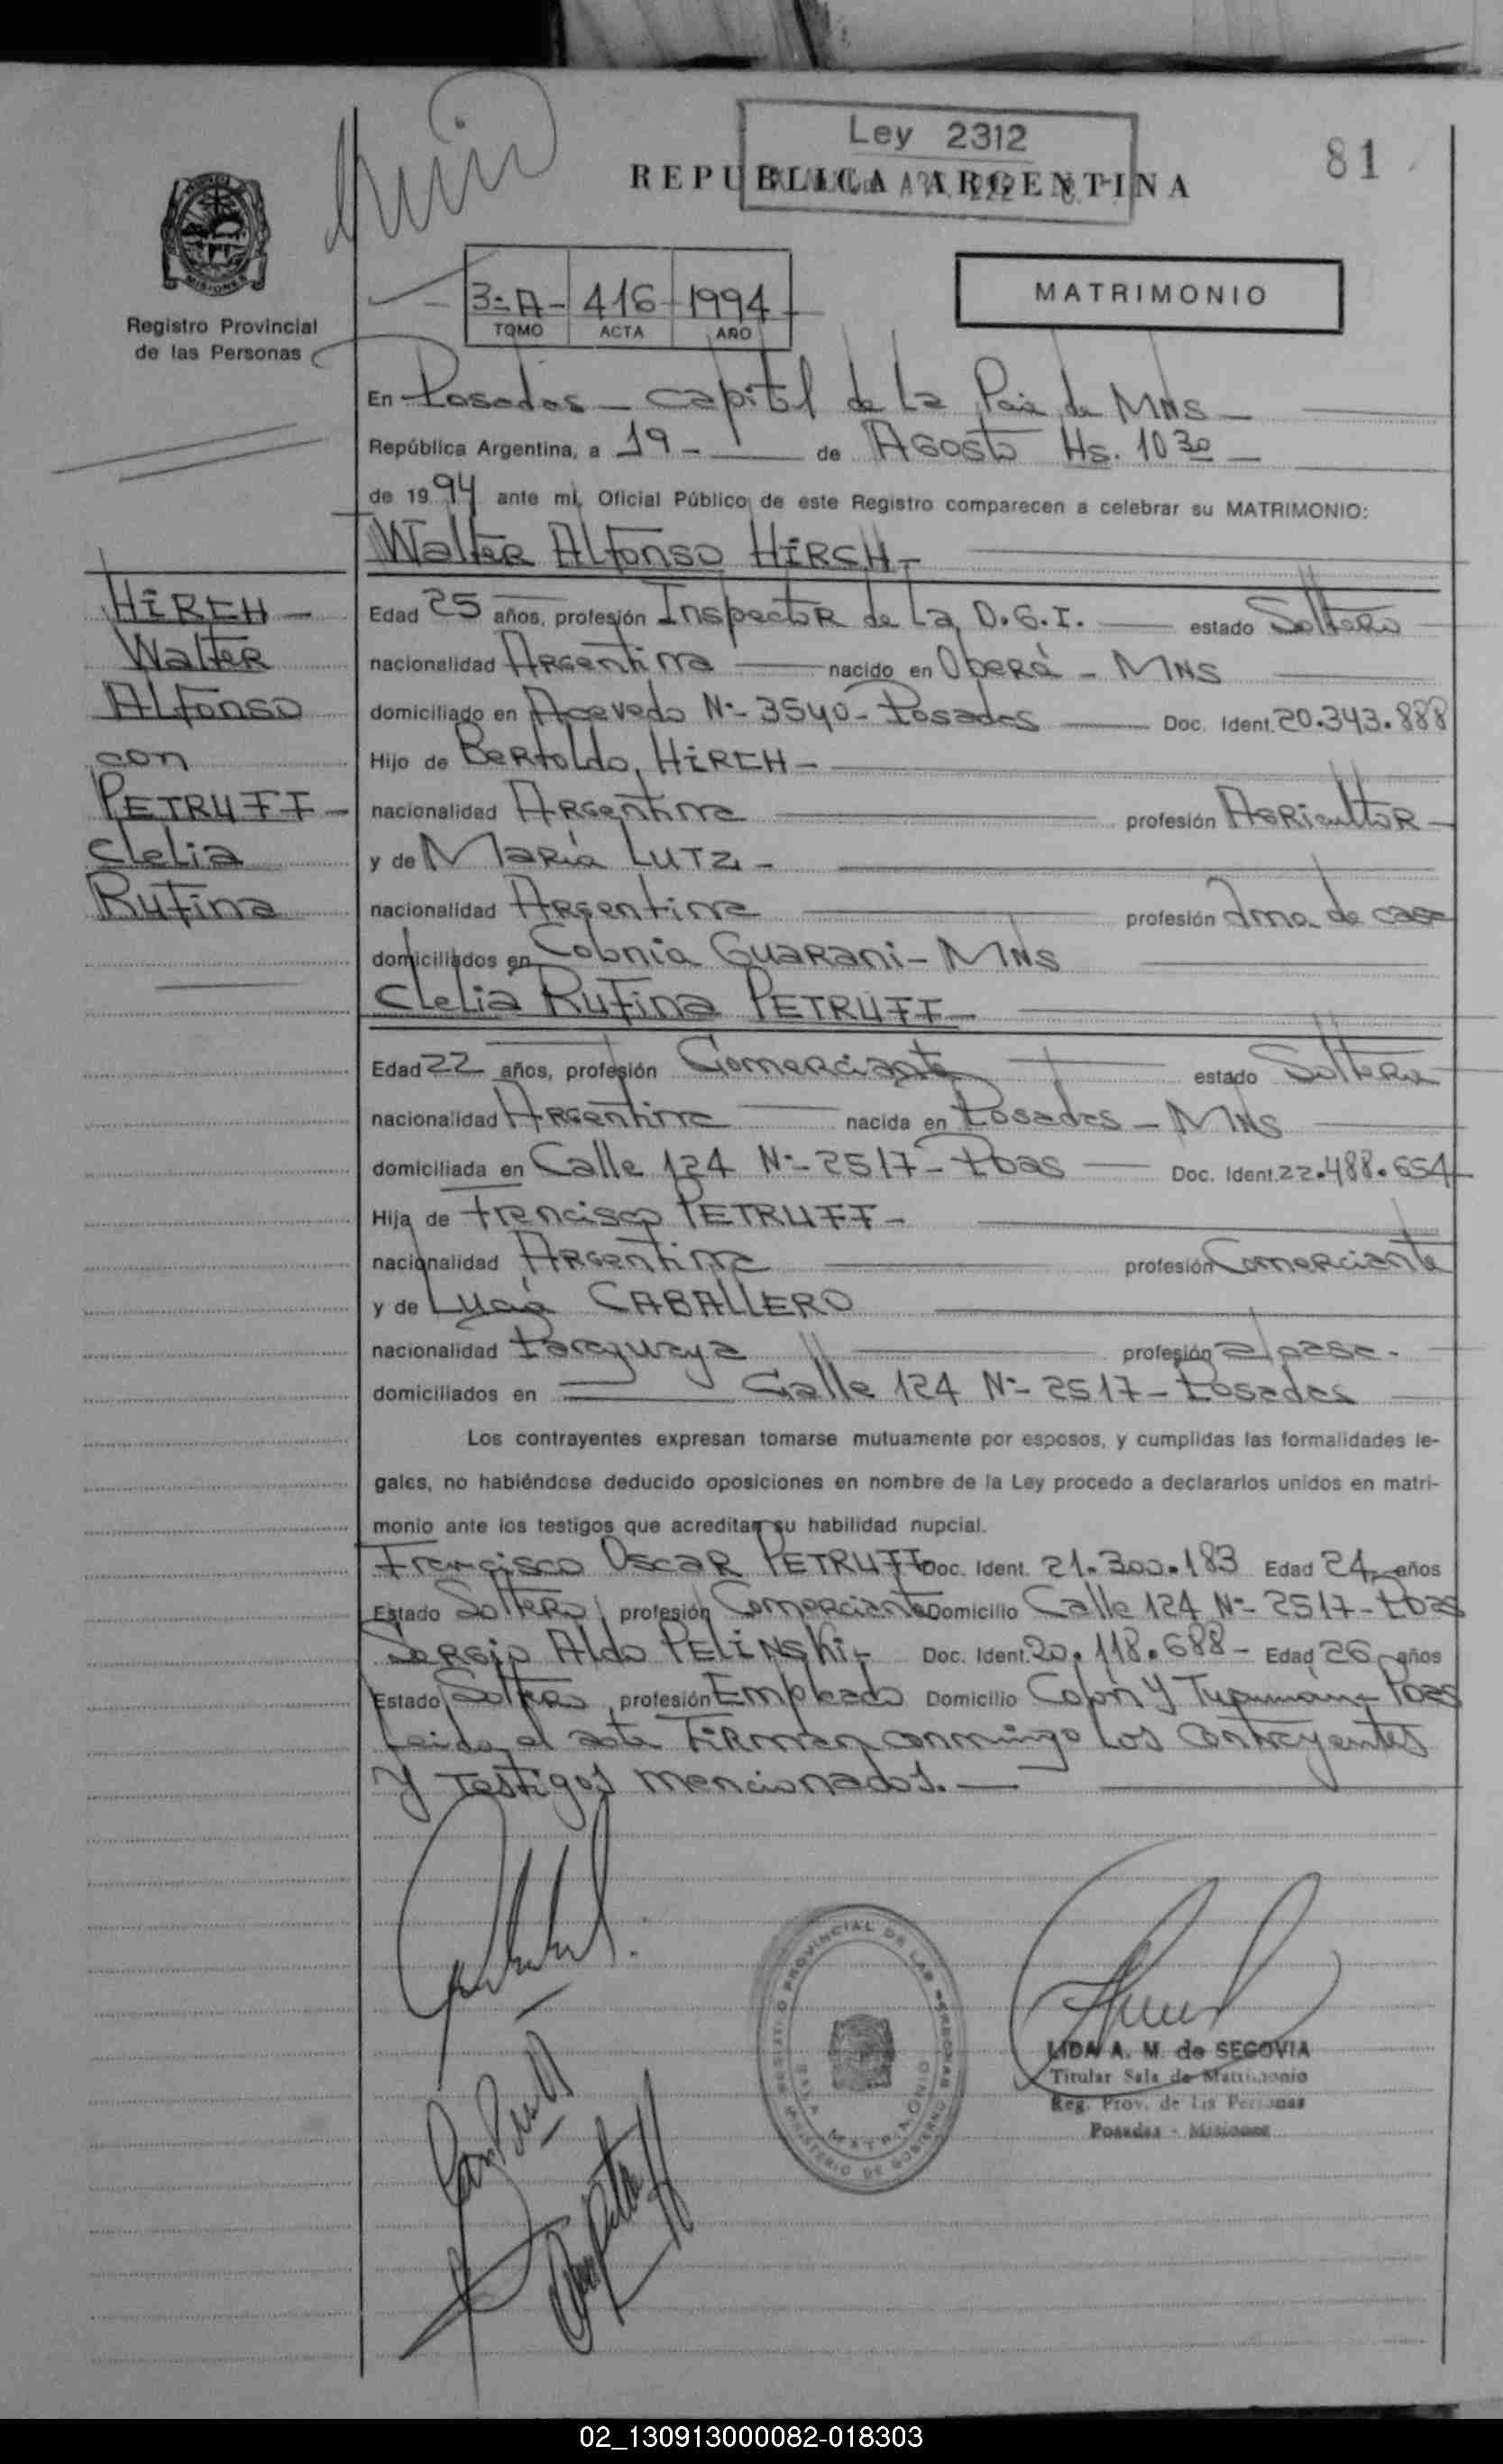 Ley 2312
81
REPUBLICA ARGENTINA
MISIONES
Registro Provincial
de las Personas
3-A- 416 1994
TOMO ACTA AÑO
MATRIMONIO
En Posadas - capital de la de MNS -
República Argentina, a 19 - de AGosto Hs. 10 30 -
de 1994 ante mi, Oficial Público de este Registro comparecen a celebrar su MATRIMONIO:
Walter Alfonso HIRCH -
HIRCH -
Walter
Alfonso
con
PETRUFF -
Clelia
Rufina
Edad 25 años, profesión Inspector de La D.G.I. - estado Soltero
nacionalidad Argentina - nacido en Oberá - MNS
domiciliado en Acevedo Nº- 3540 - Posadas - Doc. Ident. 20.343.888
Hijo de Bertoldo HIRCH -
nacionalidad Argentina profesión Agricultor -
y de María LUTZ -
nacionalidad Argentina profesión Ama de casa
domiciliados en Colonia Guarani - MNS
Clelia Rufina PETRUFF -
Edad 22 años, profesión Comerciante estado Soltera
nacionalidad Argentina nacida en Posadas - MNS
domiciliada en Calle 124 Nº- 2517 - Pdas - Doc. Ident. 22.488.654
Hija de Francisco PETRUFF -
nacionalidad Argentina profesión Comerciante
y de Lucia CABALLERO
nacionalidad Paraguaya profesión
domiciliados en Calle 124 Nº- 2517 - Posadas
Los contrayentes expresan tomarse mutuamente por esposos, y cumplidas las formalidades le-
gales, no habiéndose deducido oposiciones en nombre de la Ley procedo a declararlos unidos en matri-
monio ante los testigos que acreditan su habilidad nupcial.
Francisco Oscar PETRUFF Doc. Ident. 21.300.183 Edad 24 años
Estado Soltero profesión Comerciante Domicilio Calle 124 Nº- 2517 - Pdas
Sergio Aldo PELINSKI - Doc. Ident. 20.118.688 - Edad 26 años
Estado Soltero profesión Empleado Domicilio Colón y Tucumán Pdas
Leida el acta Firman conmingo los contrayentes
y testigos mencionados. -
REGISTRO PROVINCIAL DE LAS PERSONAS
SALA MATRIMONIO
MINISTERIO DE GOBIERNO
LIDA A. M. de SEGOVIA
Titular Sala de Matrimonio
Reg. Prov. de las Personas
Posadas - Misiones
02_130913000082-018303